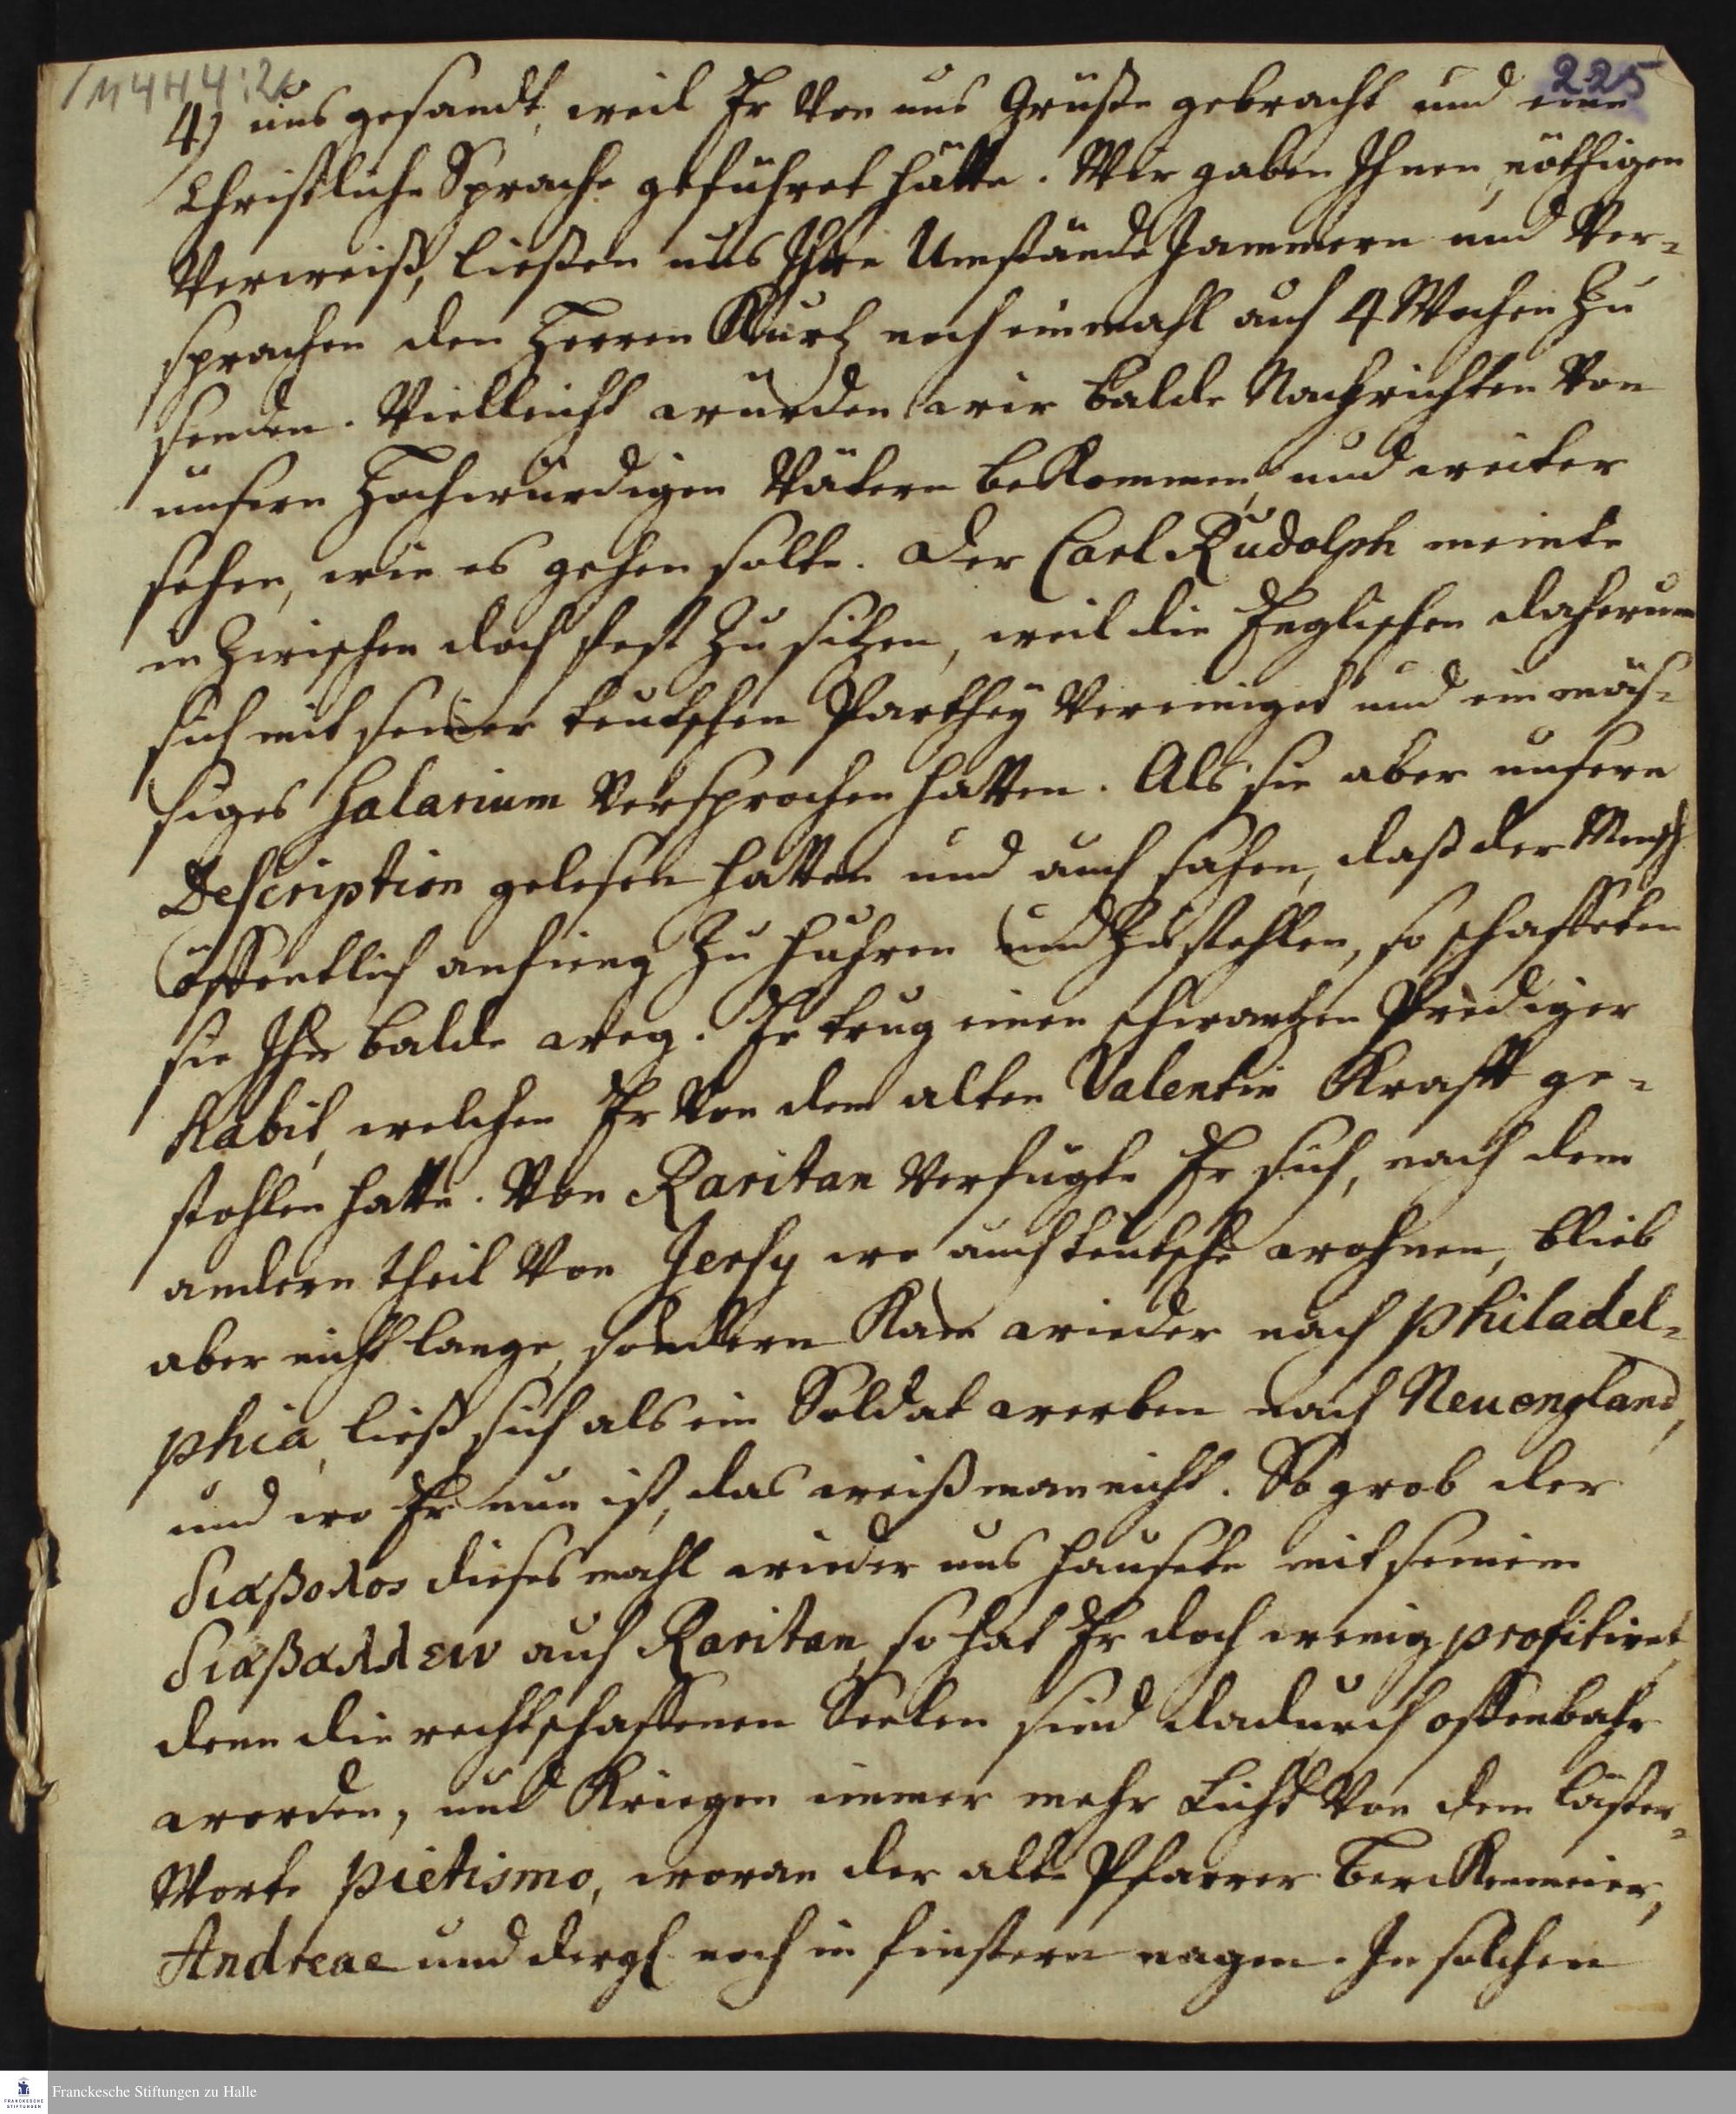 1 M 4 H 4 : 20
225
4) uns gesandt, weil Er von uns Grüße gebracht und eine
Christliche Sprache geführet hätte. Wir gaben Ihnen nöthigen
Verweiß, ließen uns Ihre Umstände Jammern und Ver-
sprachen den Herren Kurtz noch einmahl auf 4 Wochen zu
senden. Vielleicht würden wir balde Nachrichten von
unsern Hochwürdigen Vätern bekommen, und weiter
sehen, wie es gehen solte. Der Carl Rudolph meinte
in zwischen doch fest zu sitzen, weil die Englischen daherum
sich mit seiner teutschen Parthey vereiniget und ein mäs-
siges Salarium versprochen hatten. Als sie aber unsere
Description gelesen hatten und auch sahen, daß der Mensch
öffentlich anfieng zu huhren und zu stehlen, so schaffeten
sie Ihn balde weg. Er trug einen schwartzen Prediger
Habit, welchen Er von dem alten Valentin Krafft ge-
stohlen hatte. Von Raritan verfügte Er sich, nach dem
andern theil von Jersy wo auch teutsche wohnen, blieb
aber nicht lange, sondern kam wieder nach Philadel-
phia, ließ sich als ein Soldat werben nach Neuengland,
und wo Er nun ist, das weiß man nicht. So grob der
διαβολος dieses mahl wieder uns hausete mit seinem
διαβαλλειν auf Raritan, so hat Er doch wenig profitiret,
denn die rechtschaffenen Seelen sind dadurch offenbahr
worden, und kriegen immer mehr Licht von dem läster-
Worte pietismo, woran der alte Pfarrer Berckenmeier,
Andreae und dergl. noch in finstern nagen. In solchen
Franckesche Stiftungen zu Halle
FRANCKESCHE
STIFTUNGEN